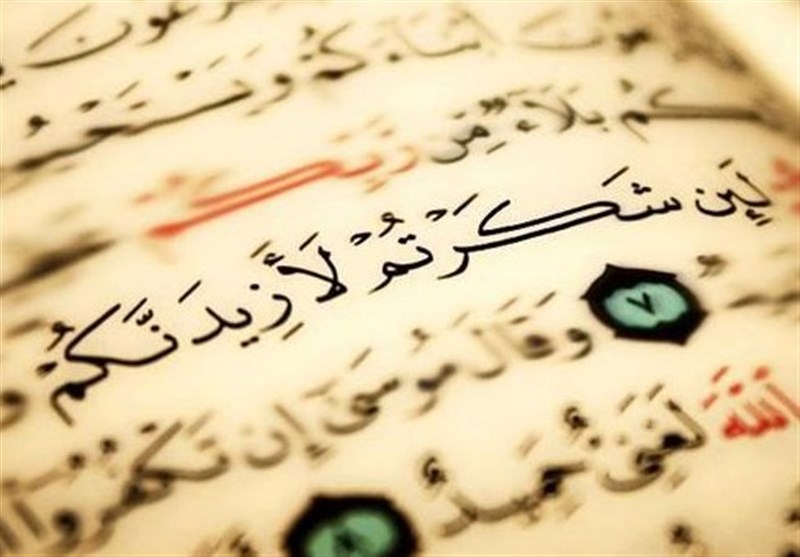 أَبْنَاءَكُمْ
بَلَاءٌ مِّن رَّبِّكُمْ
لَئِن شَكَرْتُمْ لَأَزِيدَنَّكُمْ
٧ وَقَالَ مُوسَىٰ إِن تَكْفُرُوا
اللَّهَ لَغَنِيٌّ حَمِيدٌ ٨